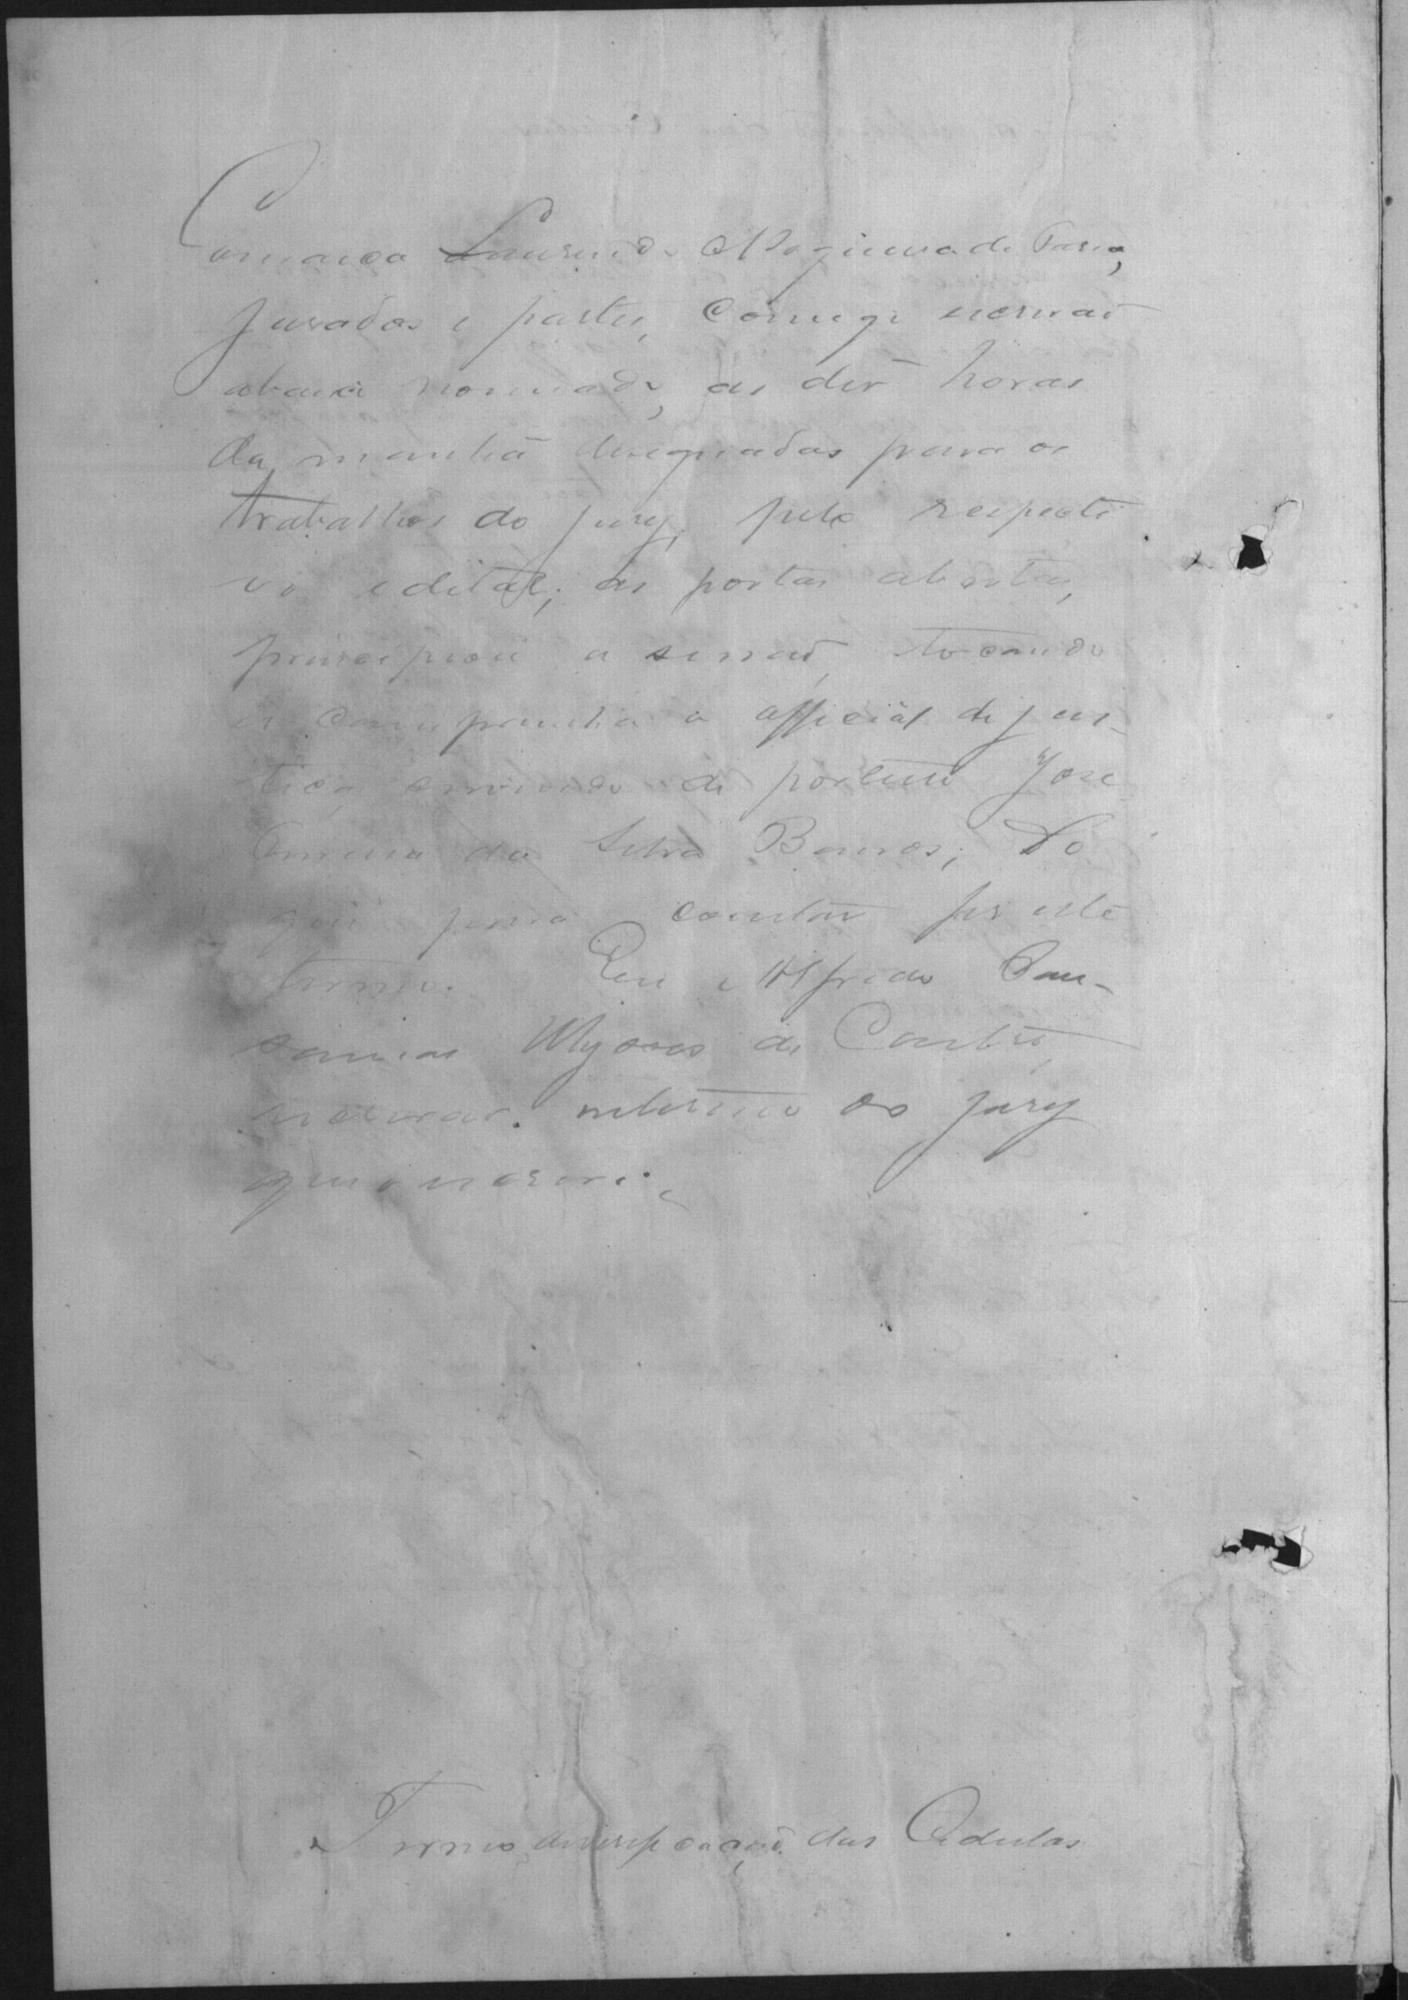 Comarca Laurindo Nogueira de Faria,
jurados e partes, comigo escrivão
abaixo nomeado, as dez horas
da manhã designadas para os
trabalhos do jury, pelo respecti
vo edital, as portas abertas,
principiou a sessão, tocando
a campainha o official de jus-
tiça, servindo de porteiro José
da Silva Barros; Do
que para constar fiz este
termo. Eu Alfredo
Ulysses de Castro,
escrivão interino do jury
que o escrevi.
Termo de verificação das Cedulas